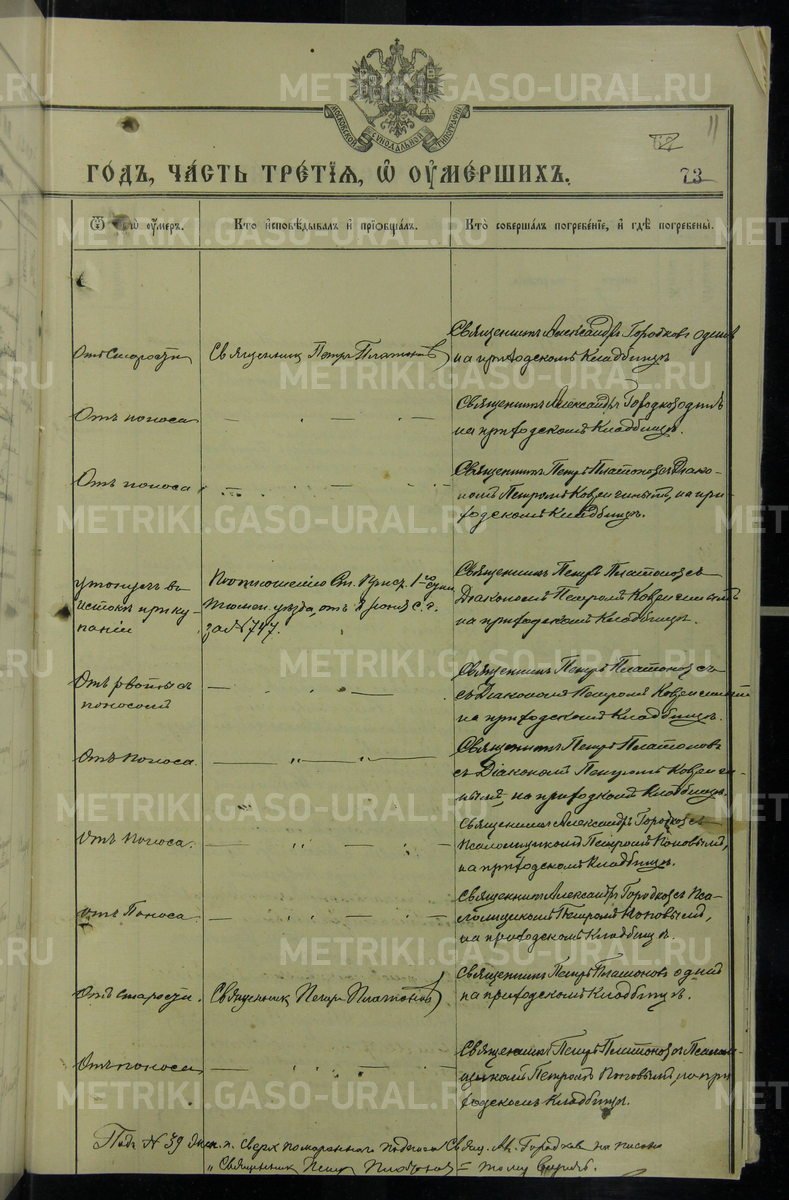 METRIKI.GASO-URAL.RU
МОСКОВСКОЙ СѴНОДАЛЬНОЙ ТИПОГРАФІИ
11
ГОДЪ, ЧАСТЬ ТРЕТІЯ, Ѡ ОУМЕРШИХЪ.
73
Ѿ чегѡ оумеръ.
Кто исповѣдывалъ и пріобщалъ.
Кто совершалъ погребеніе, и гдѣ погребены.
Отъ старости
Священникъ Петръ Платоновъ
Священникъ Александръ Городковъ одинъ
на приходскомъ кладбищѣ
Отъ поноса
Священникъ Александръ Городковъ одинъ
на приходскомъ кладбищѣ.
Отъ поноса
Священникъ Петръ Платоновъ съ Діако-
номъ Петромъ на при-
ходскомъ кладбищѣ.
утонулъ въ
истокѣ при ку-
паніи
По отношенію Ст. 1-го
Тюмен. уѣзда, отъ іюня с. г.
за № 747.
Священникъ Петръ Платоновъ съ
Діакономъ Петромъ
на приходскомъ кладбищѣ.
Отъ рвоты съ
поносомъ
Священникъ Петръ Платоновъ съ
съ Діакономъ Петромъ
на приходскомъ кладбищѣ.
Отъ поноса
Священникъ Петръ Платоновъ
съ Діакономъ Петромъ
на приходскомъ кладбищѣ.
Отъ поноса.
Священникъ Александръ Городковъ съ
Псаломщикомъ Петромъ Поповымъ,
на приходскомъ кладбищѣ.
Отъ поноса.
Священникъ Александръ Городковъ съ Пса-
ломщикомъ Петромъ Поповымъ,
на приходскомъ кладбищѣ.
Отъ старости.
Священникъ Петръ Платоновъ
Священникъ Петръ Платоновъ одинъ
на приходскомъ кладбищѣ.
Отъ поноса
Священникъ Петръ Платоновъ съ Псалом-
щикомъ Петромъ Поповымъ, на при-
ходскомъ кладбищѣ.
Подъ № 39 сверхъ помараннаго Свящ. Ал. Городковъ написано
Священникъ Петръ Платоновъ = тому вѣрить.